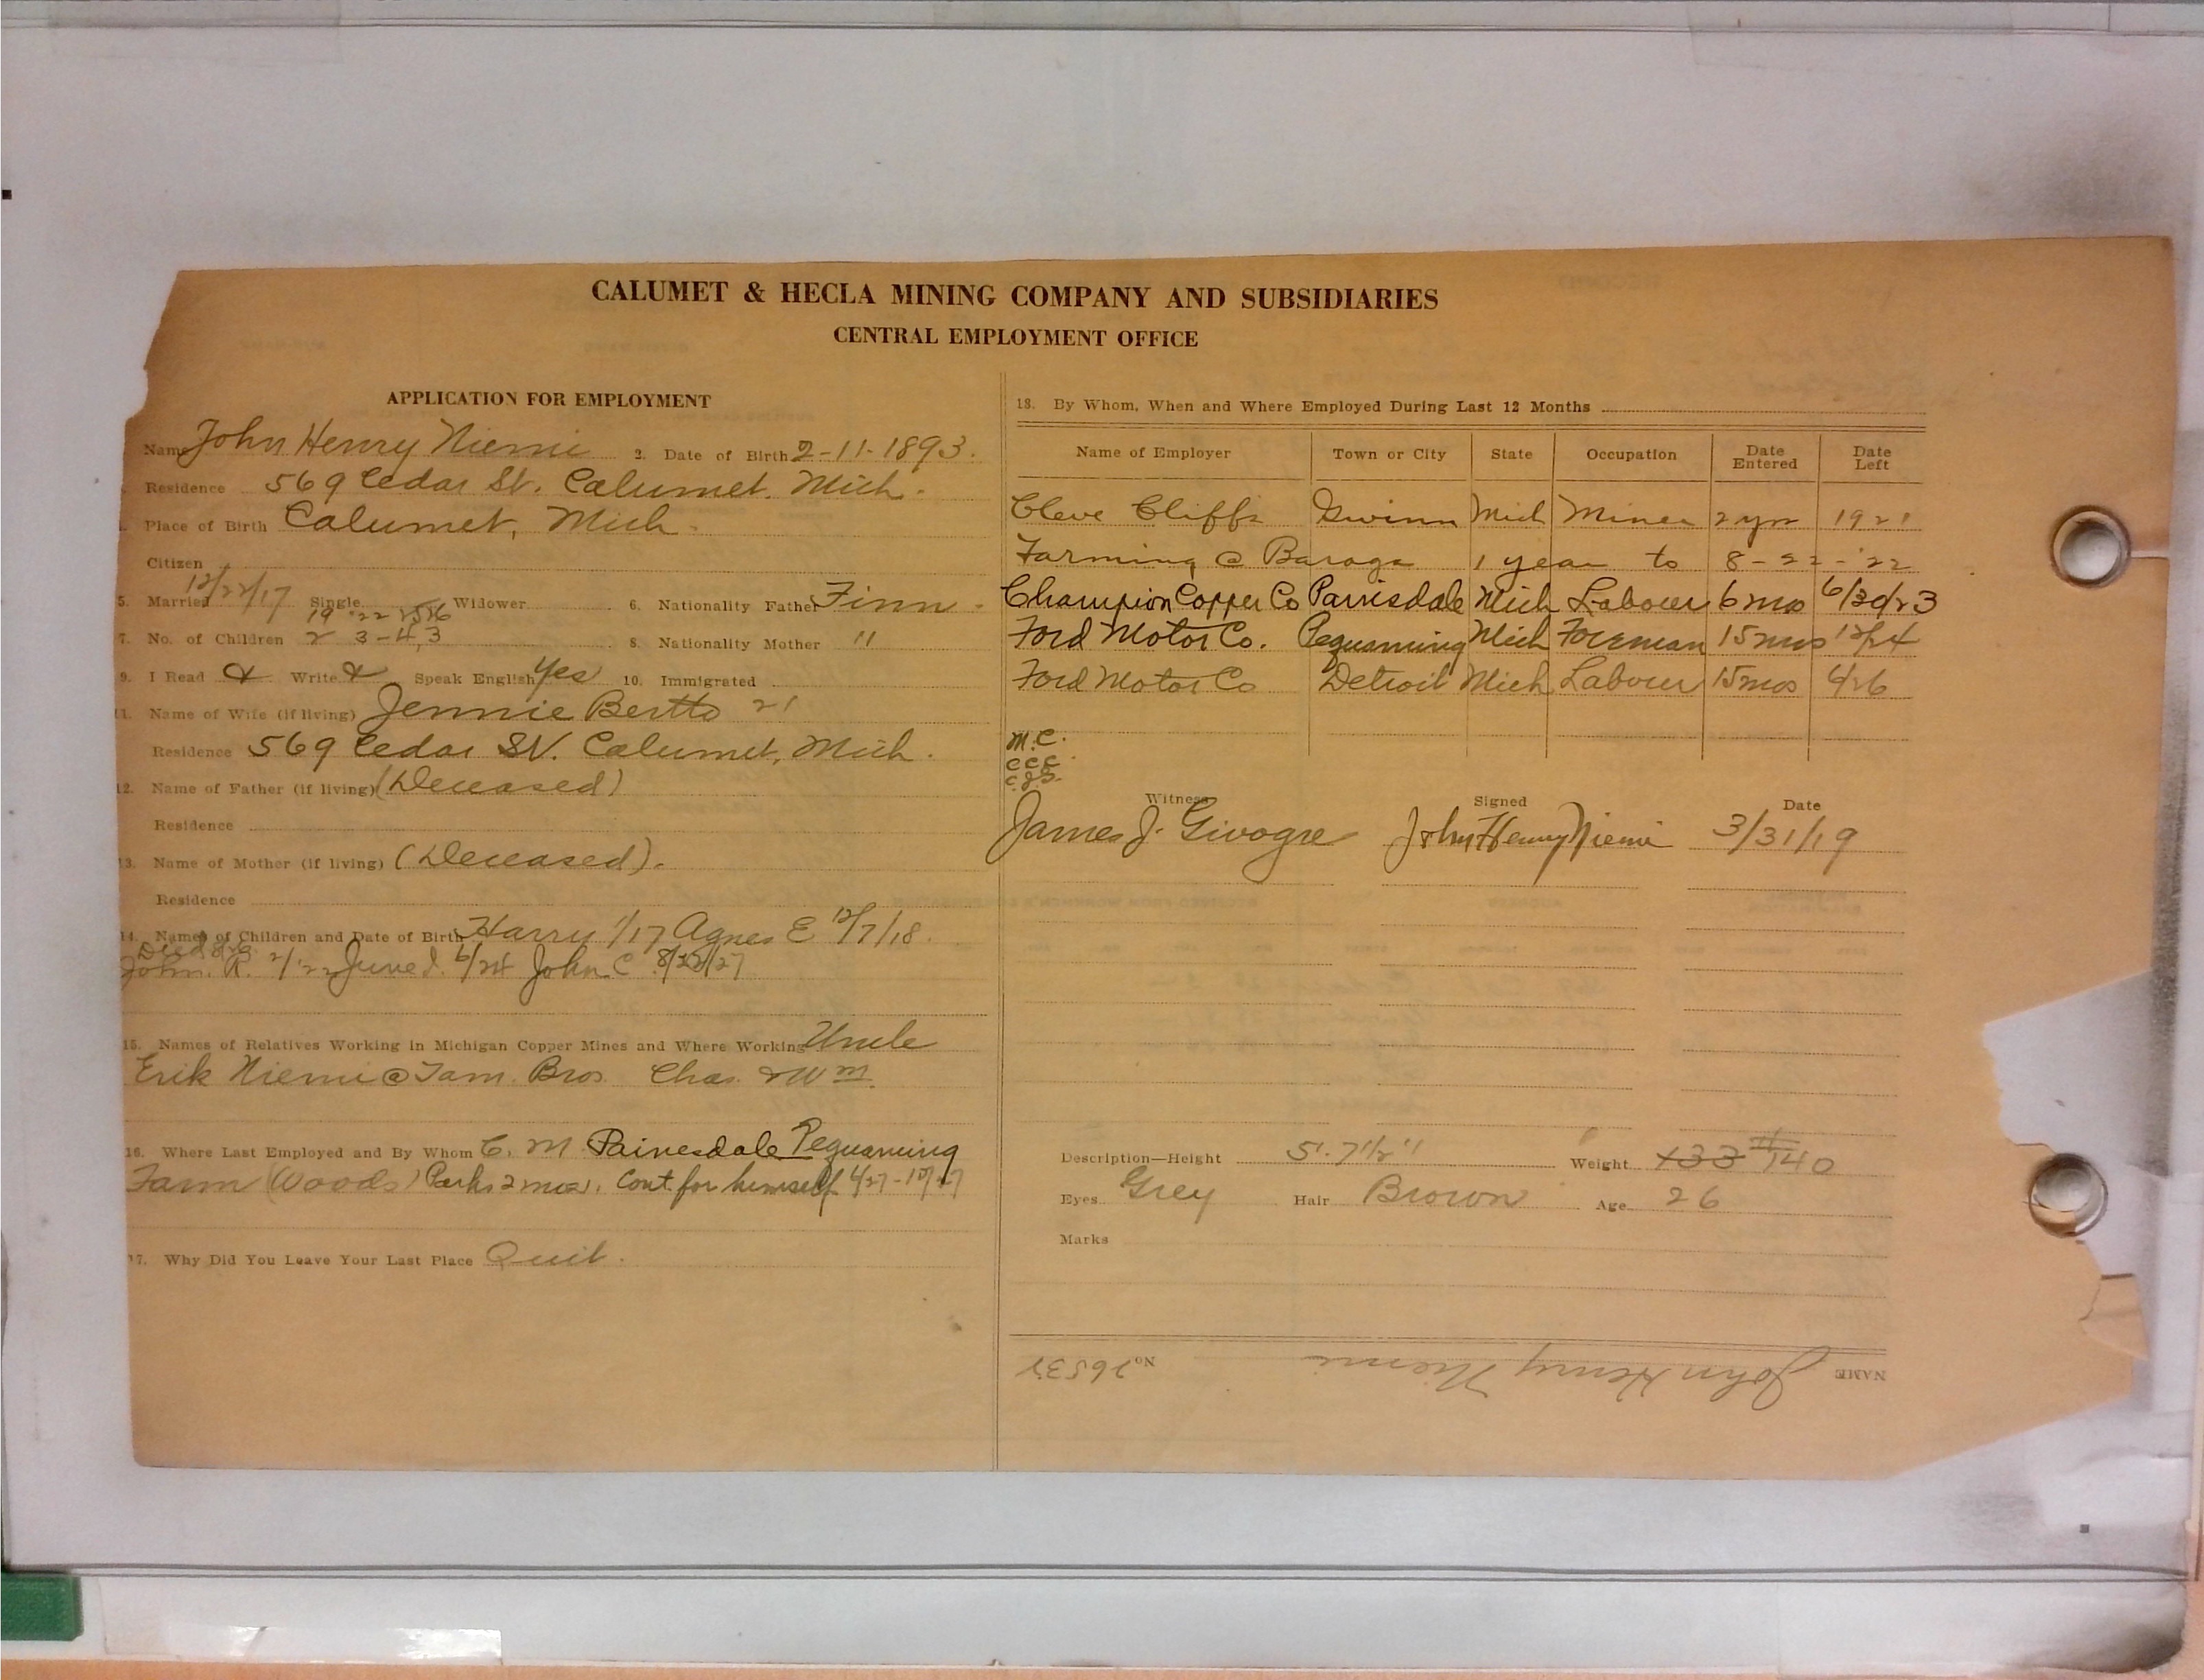 CALUMET & HECLA MINING COMPANY AND SUBSIDIARIES
CENTRAL EMPLOYMENT OFFICE
APPLICATION FOR EMPLOYMENT
Name John Henry Niemi 2. Date of Birth 2-11-1893.
Residence 569 Cedar St. Calumet. Mich.
Place of Birth Calumet, Mich.
Citizen
5. Married 12/22/17 Single Widower 6. Nationality Father Finn.
19 '22
7. No. of Children 2 3-4,3 8. Nationality Mother "
9. I Read & Write & Speak English Yes 10. Immigrated
11. Name of Wife (if living) Jennie Bertto 21
Residence 569 Cedar St. Calumet, Mich.
12. Name of Father (if living) (Deceased)
Residence
13. Name of Mother (if living) (Deceased).
Residence
14. Names of Children and Date of Birth Harry 1/17 Agnes E 12/7/18.
Died
John. R. 2/'22 June I. 6/24 John C 8/22/27
15. Names of Relatives Working in Michigan Copper Mines and Where Working Uncle
Erik Niemi @ Tam. Bros. Chas. & Wm.
16. Where Last Employed and By Whom C. M. Painesdale Pequaming
Farm (Woods) Parks 2 mos. Cont. for himself 4/27-10/27
17. Why Did You Leave Your Last Place Quit.
18. By Whom, When and Where Employed During Last 12 Months
Name of Employer Town or City State Occupation Date Entered Date Left
Cleve Cliffs Gwinn Mich Miner 2 yrs 1921
Farming @ Baraga 1 year to 8-22-'22
Champion Copper Co Painsdale Mich Labourer 6 mos 6/30/23
Ford Motor Co. Pequaming Mich Foreman 15 mos 12/24
Ford Motor Co Detroit Mich Labourer 15 mos 4/26
M.C.
CCC
C.J.S.
Witness Signed Date
James J. Givogre John Henry Niemi 3/31/19
Description—Height 5'. 7 1/2" Weight 133 140
Eyes Grey Hair Brown Age 26
Marks
NAME John Henry Niemi No. 26537